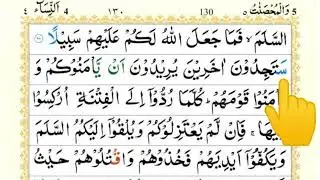 ٤ النِّسَآء ١٣٠ 130 وَالْمُحْصَنٰتُ ٥
السَّلَمَ ۙ فَمَا جَعَلَ اللّٰهُ لَكُمْ عَلَيْهِمْ سَبِيْلًا
سَتَجِدُوْنَ اٰخَرِيْنَ يُرِيْدُوْنَ اَنْ يَّاْمَنُوْكُمْ وَ
اْمَنُوْا قَوْمَهُمْ ؕ كُلَّمَا رُدُّوْۤا اِلَى الْفِتْنَةِ اُرْكِسُوْا
يْهَا ۚ فَاِنْ لَّمْ يَعْتَزِلُوْكُمْ وَ يُلْقُوْۤا اِلَيْكُمُ السَّلَمَ
وَ يَكُفُّوْۤا اَيْدِيَهُمْ فَخُذُوْهُمْ وَ اقْتُلُوْهُمْ حَيْثُ